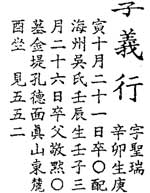 子義行
字聖瑞
辛卯生庚
寅十月二十一日卒○配
海州吳氏壬辰生壬子三
月二十六日卒父敬黙○
墓金堤孔德面眞山東麓
酉坐 見五五二